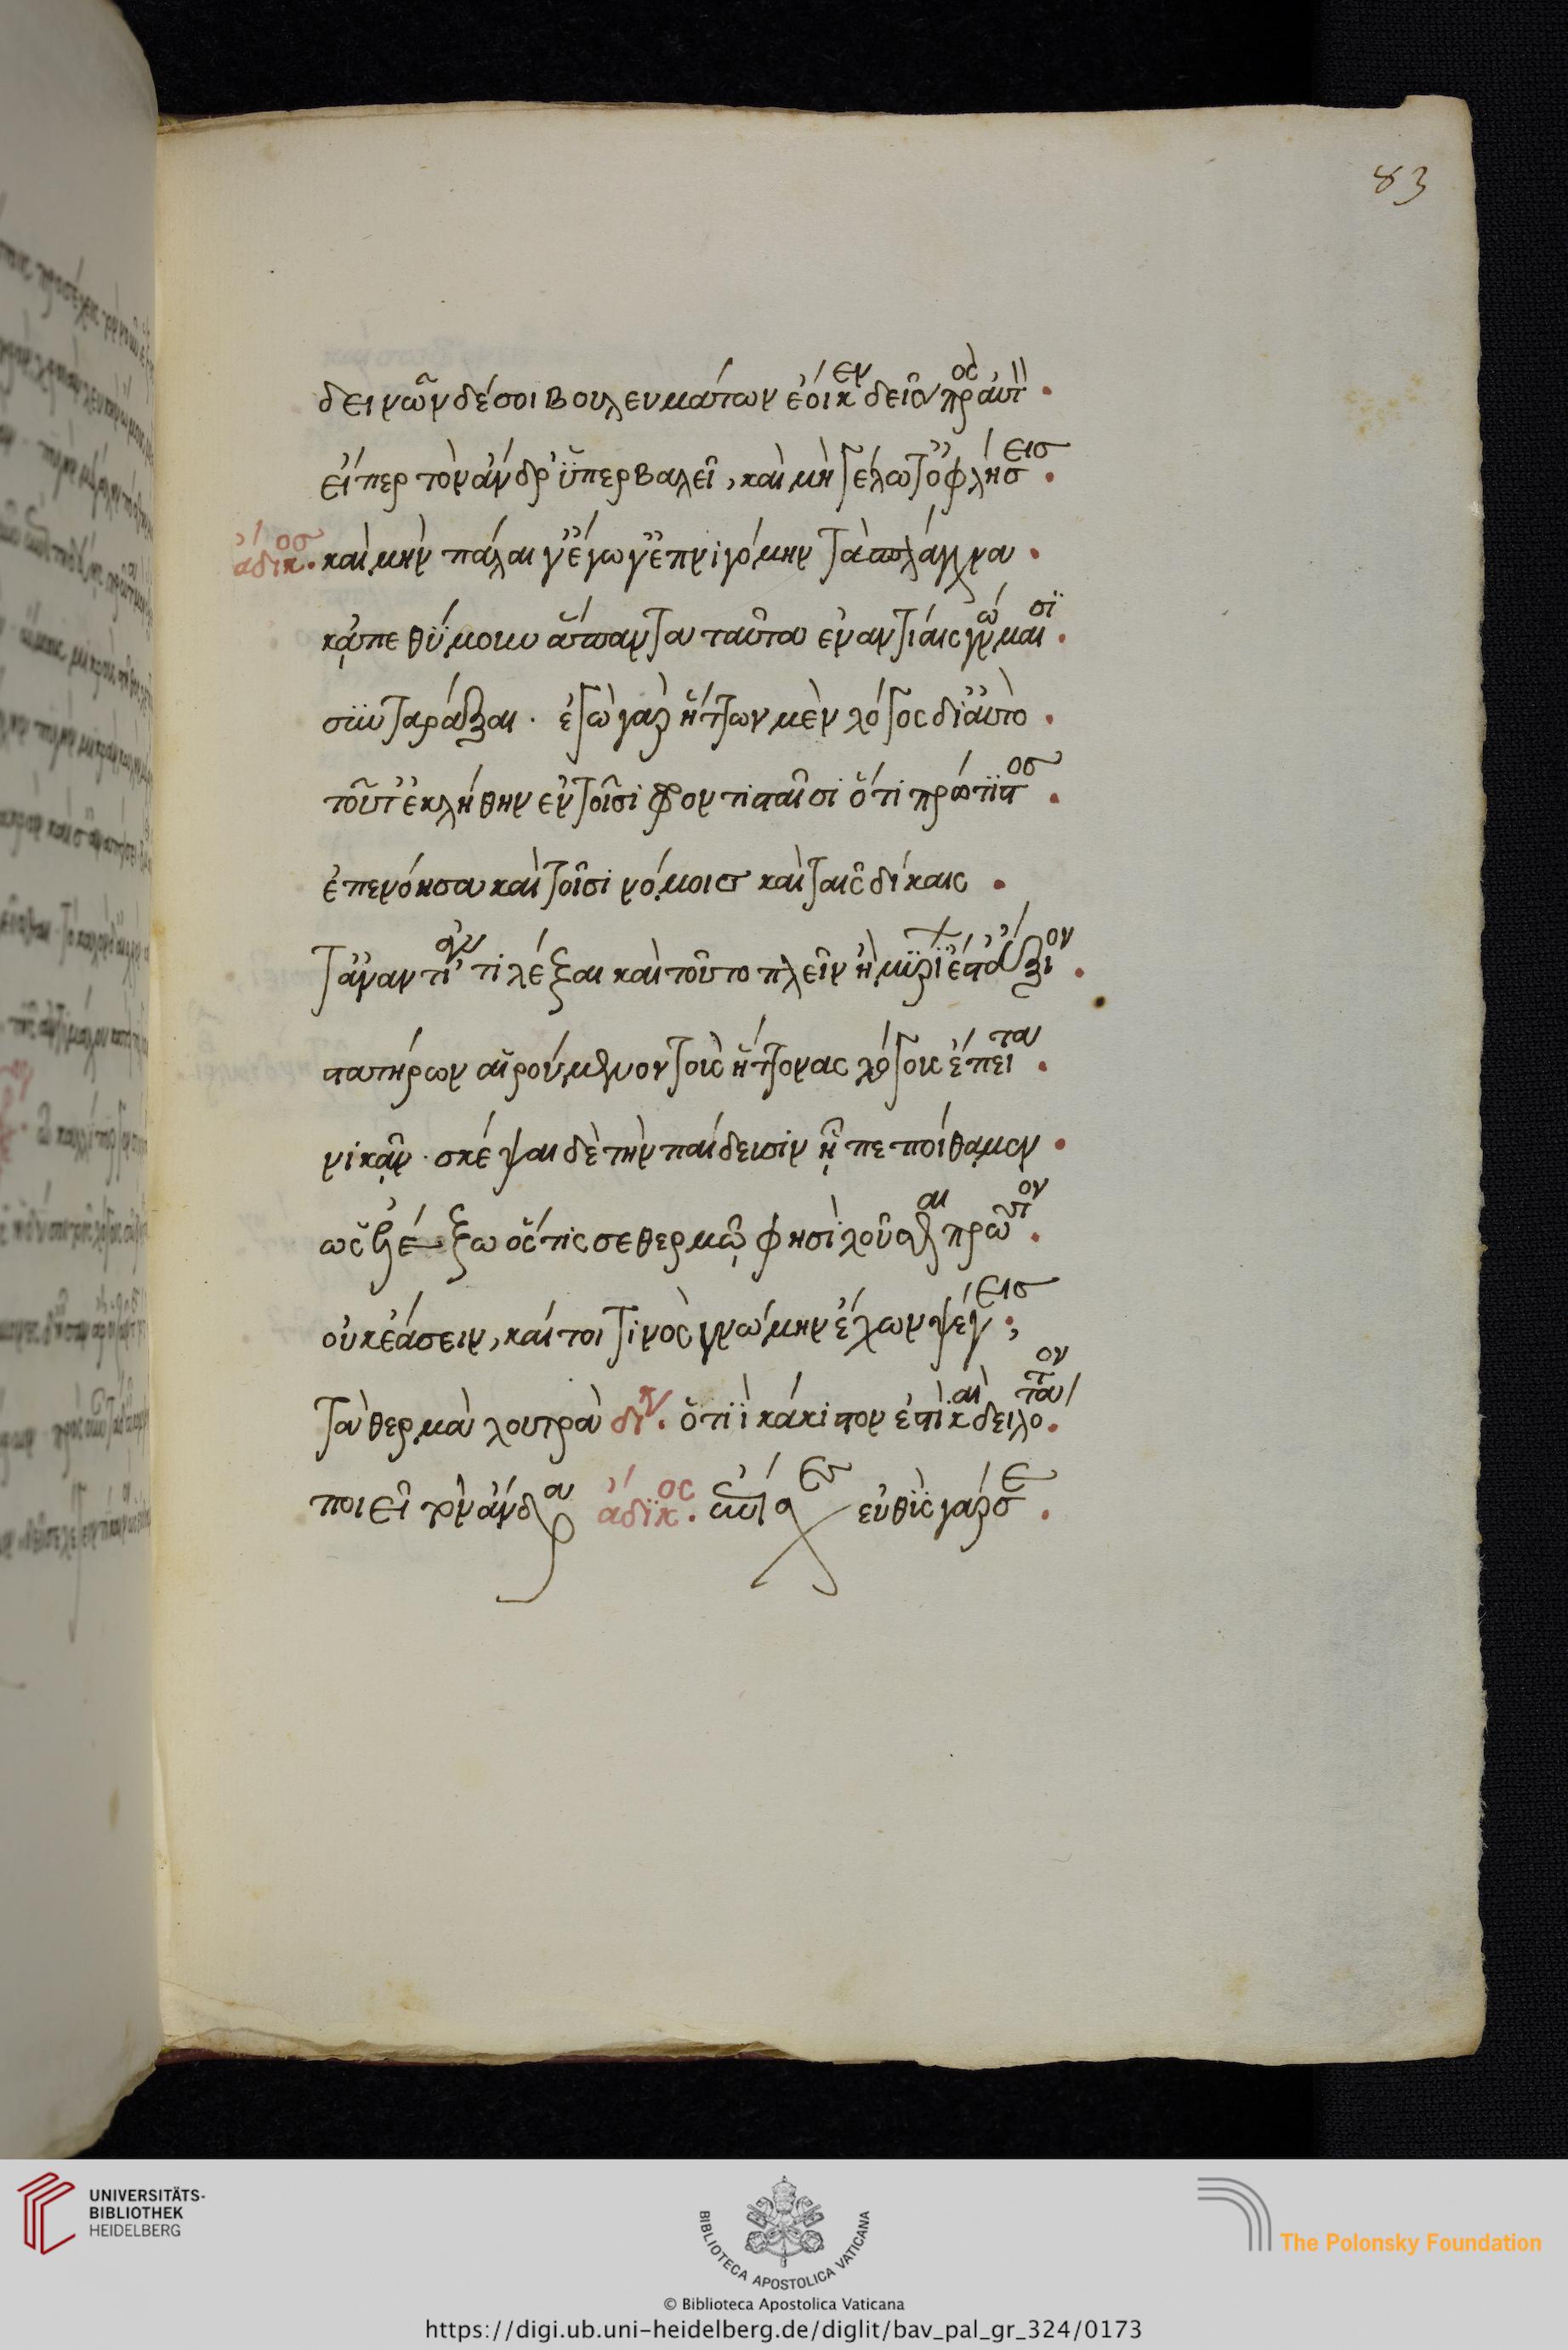 83
δεινῶν δέ σοι βουλευμάτων ἔοικεν δεῖν πρὸς αὐτὸν.
εἴπερ τὸν ἄνδρ' ὑπερβαλεῖ, καὶ μὴ γέλωτ' ὀφλήσεισ.
ἄδικοσ. καὶ μὴν πάλαι γ' ἔγωγ' ἐπνιγόμην τὰ σπλάγχνα.
κἀπεθύμουν ἅπαντα ταῦτα ἐναντίαις γνώμαισι
συνταράξαι. ἐγὼ γὰρ ἥττων μὲν λόγος δι' αὐτὸ.
τοῦτ' ἐκλήθην ἐν τοῖσι φροντισταῖσι ὅτι πρώτιστοσ.
ἐπενόησα καὶ τοῖσι νόμοισ καὶ ταῖς δίκαις.
τἀναντί' ἀντιλέξαι καὶ τοῦτο πλεῖν ἢ μυρί' ἔστ' ἄξιον.
στατήρων αἱρούμενον τοὺς ἥττονας λόγους ἔπειτα.
νικᾶν. σκέψαι δὲ τὴν παίδευσιν ᾗ πέποιθαμεν.
ὡς ἐλέγξω ὅστις σε θερμῷ φησὶ λοῦσθαι πρῶτον.
οὐκ ἐάσειν, καίτοι τίνος γνώμην ἔχων ψέγεισ;
τὰ θερμὰ λουτρὰ δικ. ὁτιὴ κάκιστον ἐστὶ καὶ δειλότατον
ποιεῖ τὸν ἄνδρα ἄδικος. ἐπίσχες εὐθὺς γάρ σε.
UNIVERSITÄTS-
BIBLIOTHEK
HEIDELBERG
BIBLIOTECA APOSTOLICA VATICANA
© Biblioteca Apostolica Vaticana
The Polonsky Foundation
https://digi.ub.uni-heidelberg.de/diglit/bav_pal_gr_324/0173